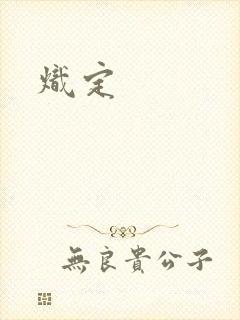 熾定
無良貴公子